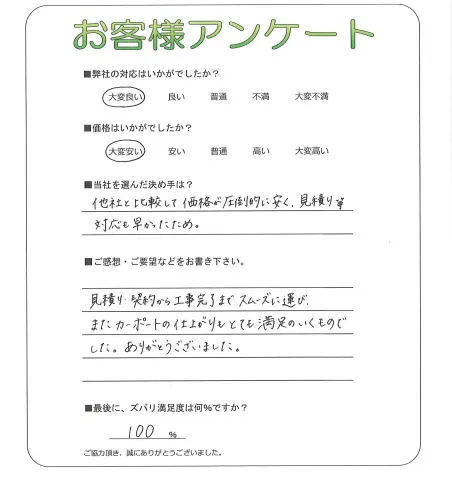 お客様アンケート
■弊社の対応はいかがでしたか?
大変良い 良い 普通 不満 大変不満
■価格はいかがでしたか?
大変安い 安い 普通 高い 大変高い
■当社を選んだ決め手は?
他社と比較して価格が圧倒的に安く、見積り等
対応も早かったため。
■ご感想・ご要望などをお書き下さい。
見積り・契約から工事完了までスムーズに運び、
またカーポートの仕上がりもとても満足のいくもので
した。ありがとうございました。
■最後に、ズバリ満足度は何%ですか?
100 %
ご協力頂き、誠にありがとうございました。